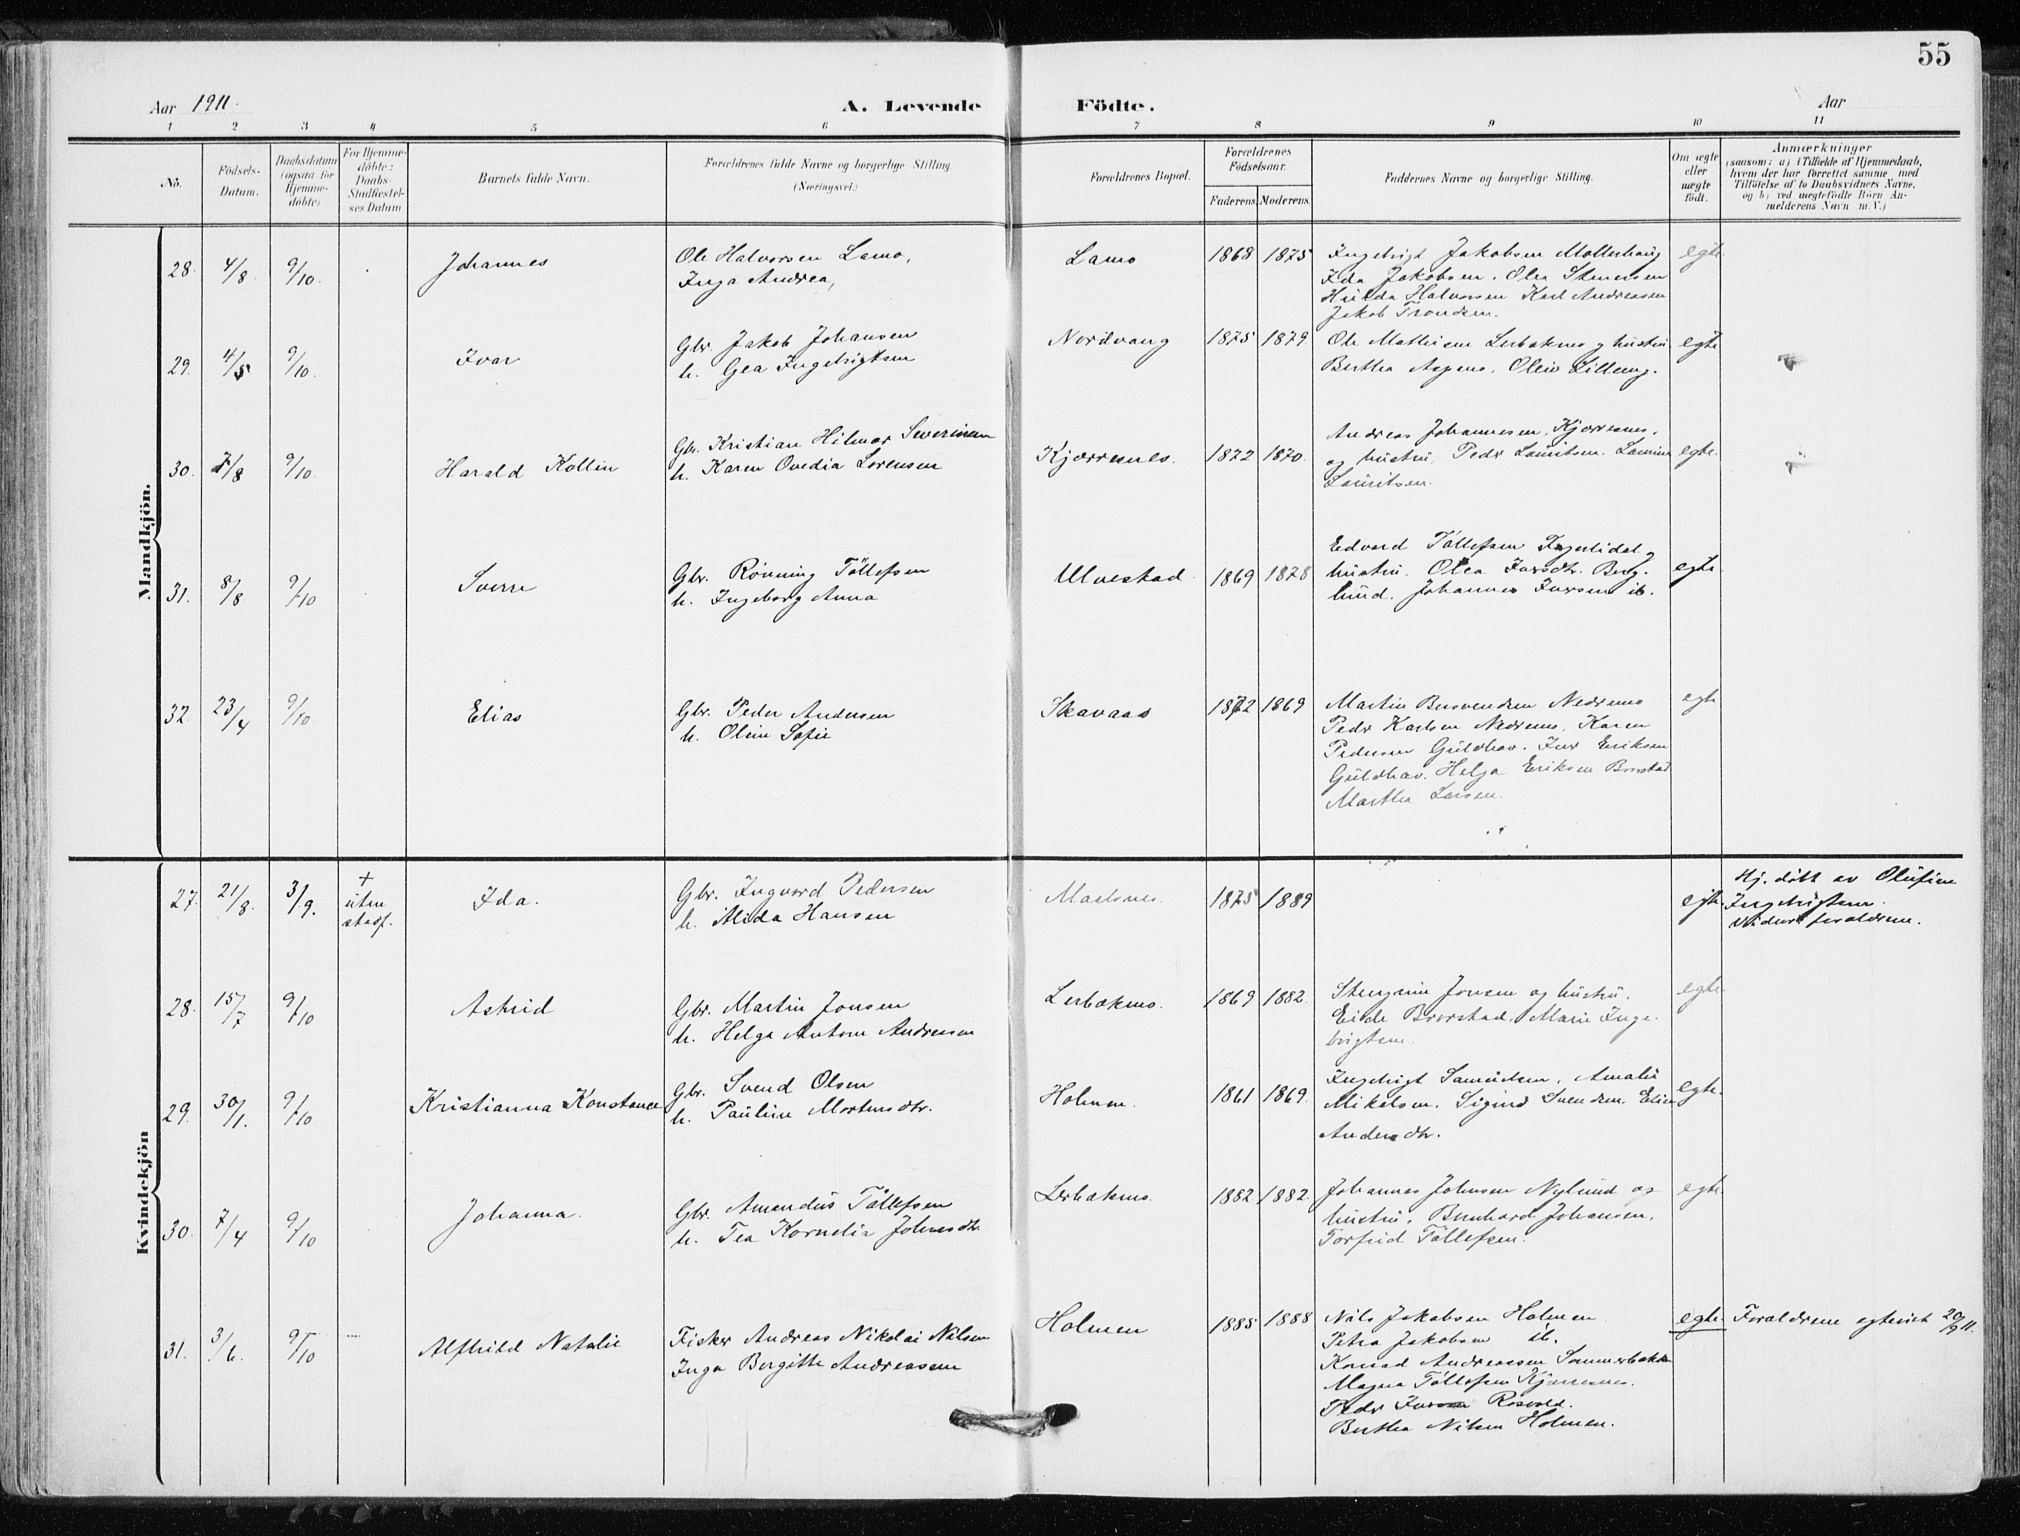 55
Aar 1911.
A. Levende Födte.
Aar
1 2 3 4 5 6 7 8 9 10 11
No.
Födsels-
Datum.
Daabsdatum
(ogsaa for
Hjemme-
döbte)
For Hjemme-
döbte:
Daabs-
Stadfæstel-
ses Datum
Barnets fulde Navn.
Forældrenes fulde Navne og borgerlige Stilling
(Næringsvei.)
Forældrenes Bopæl.
Forældrenes
Födselsaar.
Faderens.
Moderens.
Faddernes Navne og borgerlige Stilling.
Om ægte
eller
uægte
födt.
Anmærkninger
(saasom: a) i Tilfælde af Hjemmedaab,
hvem der har forrettet samme med
Tilföielse af to Daabsvidners Navne,
og b) ved uægtefödte Börn An-
melderens Navn m. V.)
Mandkjön.
28. 4/8 9/10 Johannes
Ole Halvorsen Lamo,
Inga Andrea,
Lamo 1868 1875
Ingebrigt Jakobsen Mollerhaug
Ida Jakobsen. Olea Stenersen
Hulda Halvorsen Karl Andreassen
Jakob Trondsen.
egte
29. 4/5 9/10. Ivar
Gbr. Jakob Johansen
h. Gea Ingebrigtsen
Nordvang 1875 1879
Ole Mathisen Lerbakmo og hustru
Berthea Aspmo. Olein Lilleng.
egte
30. 7/8 9/10. Harald Kollin
Gbr. Kristian Hilmar Severinsen
h. Karen Ovedia Lorensen
Kjærresnes. 1872 1870.
Andreas Johannesen, Kjærresnes.
og hustru, Peder Lauritsen.
Lauritsen.
egte.
31. 8/8 9/10 Sverre
Gbr. Rönning Tollefsen
h. Ingeborg Anna
Ulvestad. 1869 1878
Edvard Tollefsen Fagerlidal og
hustru. Olea Iversdtr. Berg-
lund. Johannes Iversen ib.
egte
32 23/4 9/10 Elias
Gbr. Peder Andersen
h. Olein Sofie
Skavaas 1872 1869
Martin Nedremo
Peder Karlsen Nedremo. Karen
Pedersen Guldhav. Iver Eriksen
Guldhav. Helga Eriksen Brorstad
Marthea Larsen.
egte
Kvindekjön
27. 21/8. 3/9. +
uten
stadf.
Ida.
Gbr. Ingvard Pedersen
h. Alida Hansen
Masternes. 1875 1889
egte.
Hj. döbt av Olufine
Ingebrigtsen.
Vidner foraldrene.
28. 15/7 9/10 Astrid
Gbr. Martin Jonsen
h. Helga Antone Andreassen
Lerbakmo. 1869 1882.
Stengrim Jonsen og hustru.
Eide Brorstad. Marie Inge-
brigtsen.
egte.
29. 30/1. 9/10 Kristianna Konstance
Gbr. Svend Olsen
h. Pauline Mortensdtr.
Holmen. 1861 1869.
Ingebrigt Samuelsen, Amalie
Mikalsen. Sigurd Svendsen. Elen
Andersdtr.
egte.
30. 7/4 9/10 Johanna.
Gbr. Amandus Tollefsen
h. Tea Kornelia Johnsdtr.
Lerbakmo. 1882 1882.
Johannes Johnsen Nylund og
hustru. Bernhard Johansen,
Torfrid Tollefsen.
egte
31. 3/6. 9/10 Alfhild Natalie
Fisker Andreas Nikolai Nilsen
Inga Bergitte Andreassen
Holmen 1885 1888
Nils Jakobsen Holmen
Petra Jakobsen ib.
Konrad Andreassen Sommerbakken
Magna Tollefsen Kjærresnes.
Peder Iversen Rosvold.
Berthea Nilsen Holmen.
egte. Foraldrene egteviet 20/9 11.